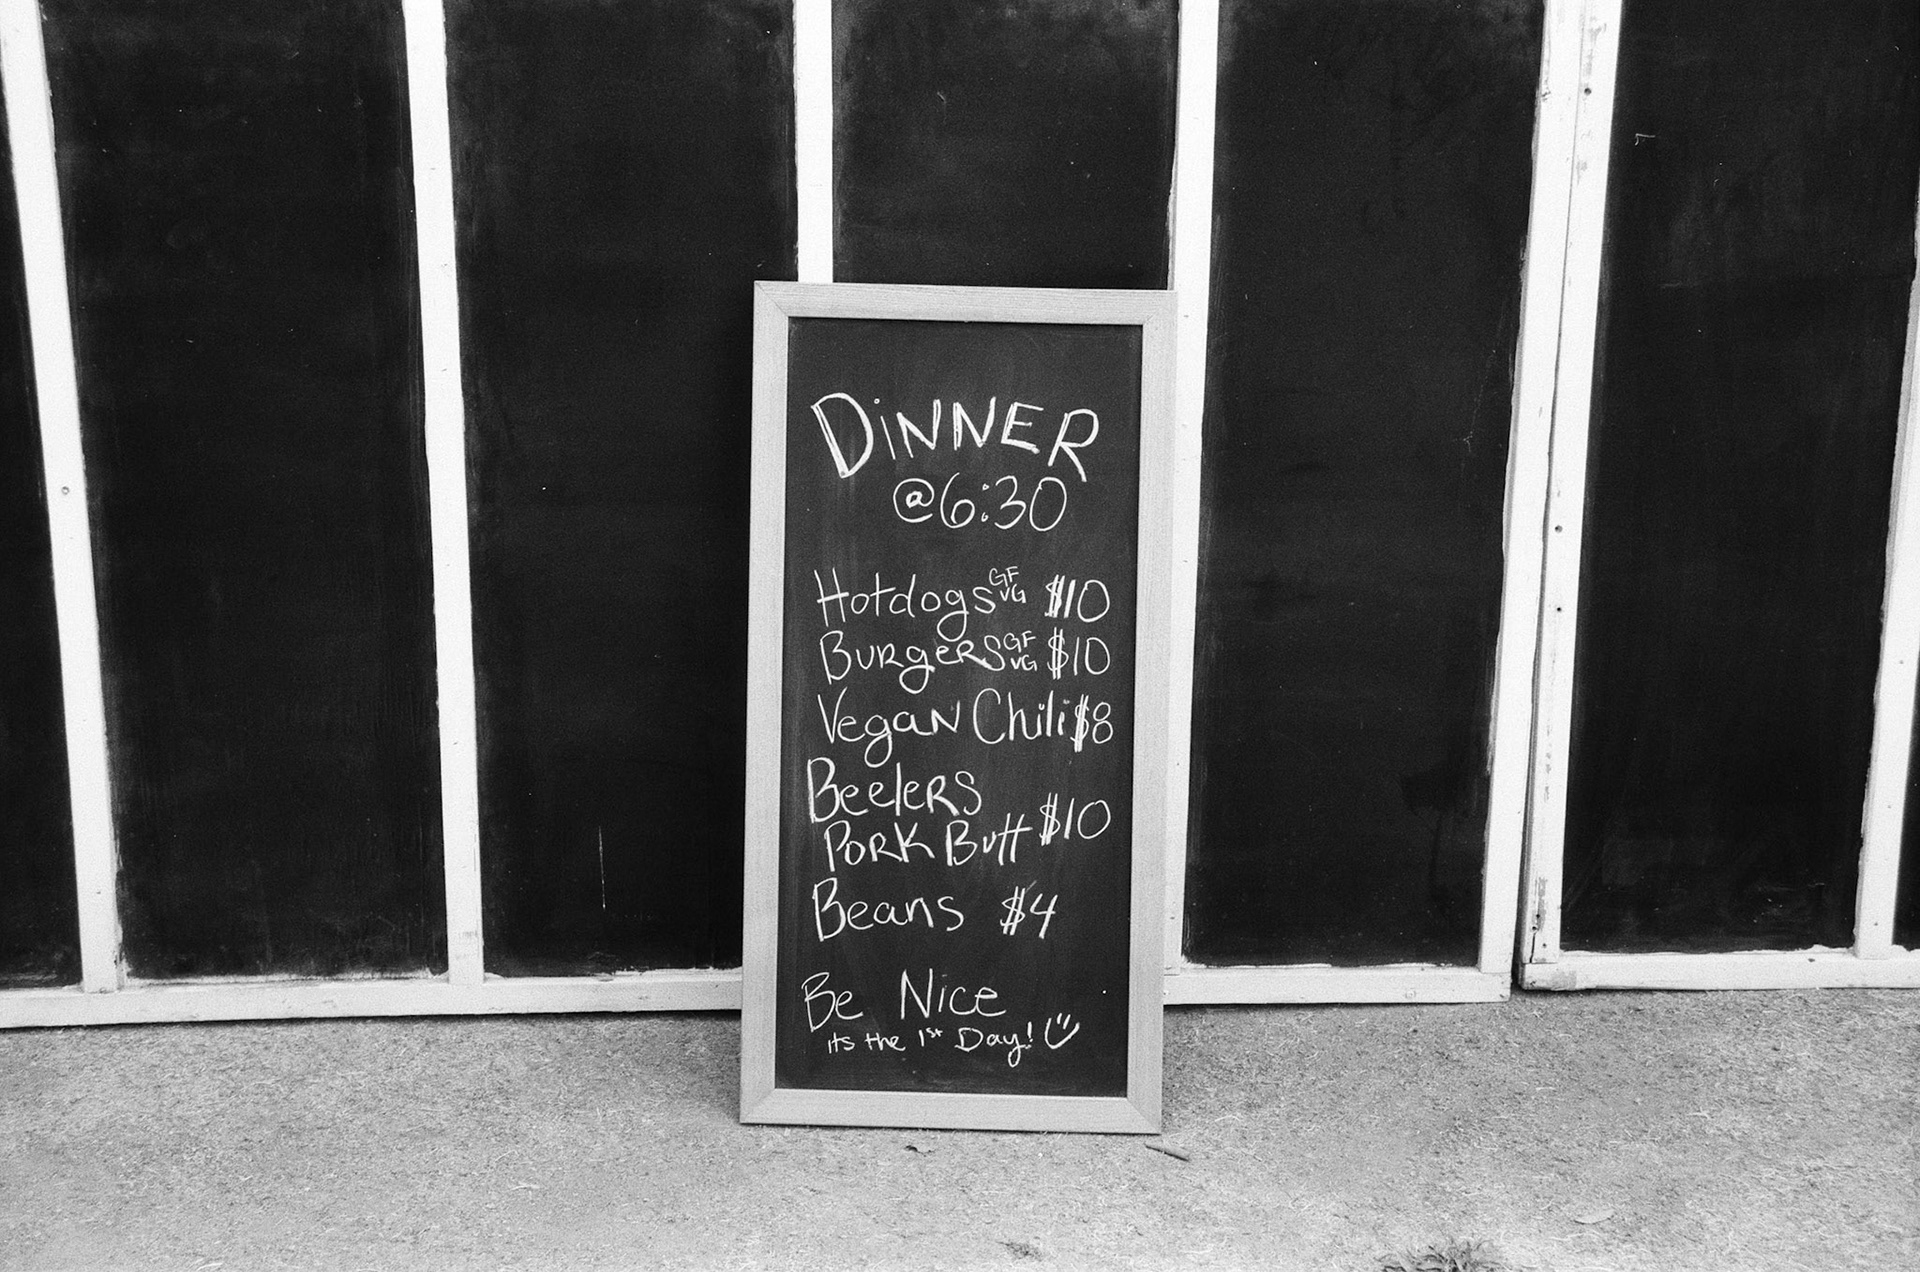 DiNNER
@6:30
Hotdogs GF VG $10
Burgers GF VG $10
Vegan Chili $8
Beelers
Pork Butt $10
Beans $4
Be Nice
its the 1st Day!